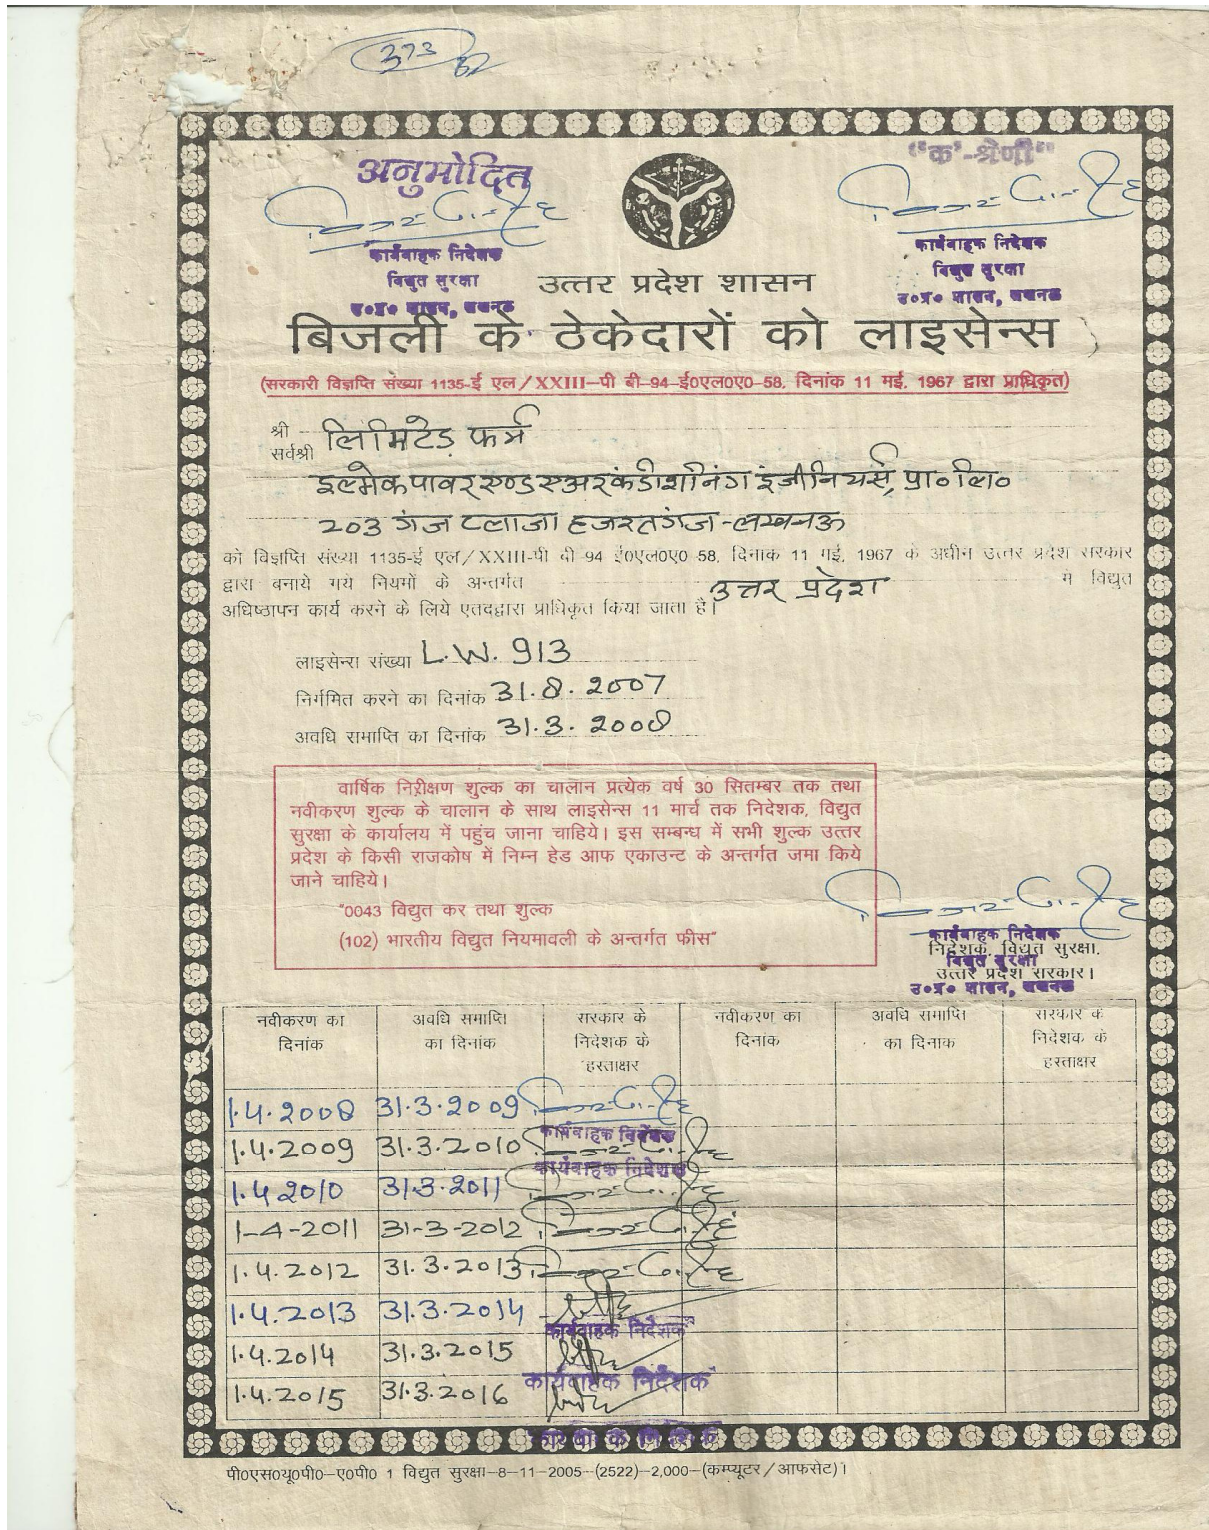 373
82
अनुमोदित
"क'-श्रेणी"
कार्यवाहक निदेशक
विद्युत सुरक्षा
उ०प्र० शासन, लखनऊ
कार्यवाहक निदेशक
विद्युत सुरक्षा
उ०प्र० शासन, लखनऊ
उत्तर प्रदेश शासन
बिजली के ठेकेदारों को लाइसेन्स
(सरकारी विज्ञप्ति संख्या 1135-ई एल/XXIII-पी बी-94-ई0एल0ए0-58, दिनांक 11 मई, 1967 द्वारा प्राधिकृत)
श्री
सर्वश्री लिमिटेड फर्म
इलमेक पावर एण्ड एअरकंडीशनिंग इंजीनियर्स, प्रा० लि०
203 गंज प्लाजा हजरतगंज-लखनऊ
को विज्ञप्ति संख्या 1135-ई एल/XXIII-पी बी-94 ई0एल0ए0 58, दिनांक 11 मई, 1967 के अधीन उत्तर प्रदेश सरकार
द्वारा बनाये गये नियमों के अन्तर्गत उत्तर प्रदेश में विद्युत
अधिष्ठापन कार्य करने के लिये एतदद्वारा प्राधिकृत किया जाता है।
लाइसेन्स संख्या L.W. 913
निर्गमित करने का दिनांक 31.8.2007
अवधि समाप्ति का दिनांक 31.3.2008
वार्षिक निरीक्षण शुल्क का चालान प्रत्येक वर्ष 30 सितम्बर तक तथा
नवीकरण शुल्क के चालान के साथ लाइसेन्स 11 मार्च तक निदेशक, विद्युत
सुरक्षा के कार्यालय में पहुंच जाना चाहिये। इस सम्बन्ध में सभी शुल्क उत्तर
प्रदेश के किसी राजकोष में निम्न हेड आफ एकाउन्ट के अन्तर्गत जमा किये
जाने चाहिये।
"0043 विद्युत कर तथा शुल्क
(102) भारतीय विद्युत नियमावली के अन्तर्गत फीस"
कार्यवाहक निदेशक
निदेशक, विद्युत सुरक्षा,
विद्युत सुरक्षा
उत्तर प्रदेश सरकार।
उ०प्र० शासन, लखनऊ
नवीकरण का दिनांक | अवधि समाप्ति का दिनांक | सरकार के निदेशक के हस्ताक्षर | नवीकरण का दिनांक | अवधि समाप्ति का दिनांक | सरकार के निदेशक के हस्ताक्षर
1.4.2008 31.3.2009
कार्यवाहक निदेशक
1.4.2009 31.3.2010
कार्यवाहक निदेशक
1.4.2010 31.3.2011
1-4-2011 31-3-2012
1.4.2012 31.3.2013
1.4.2013 31.3.2014
कार्यवाहक निदेशक
1.4.2014 31.3.2015
कार्यवाहक निदेशक
1.4.2015 31.3.2016
कार्यवाहक निदेशक
पी0एस0यू0पी0-ए0पी0 1 विद्युत सुरक्षा-8-11-2005-(2522)-2,000-(कम्प्यूटर/आफसेट)।